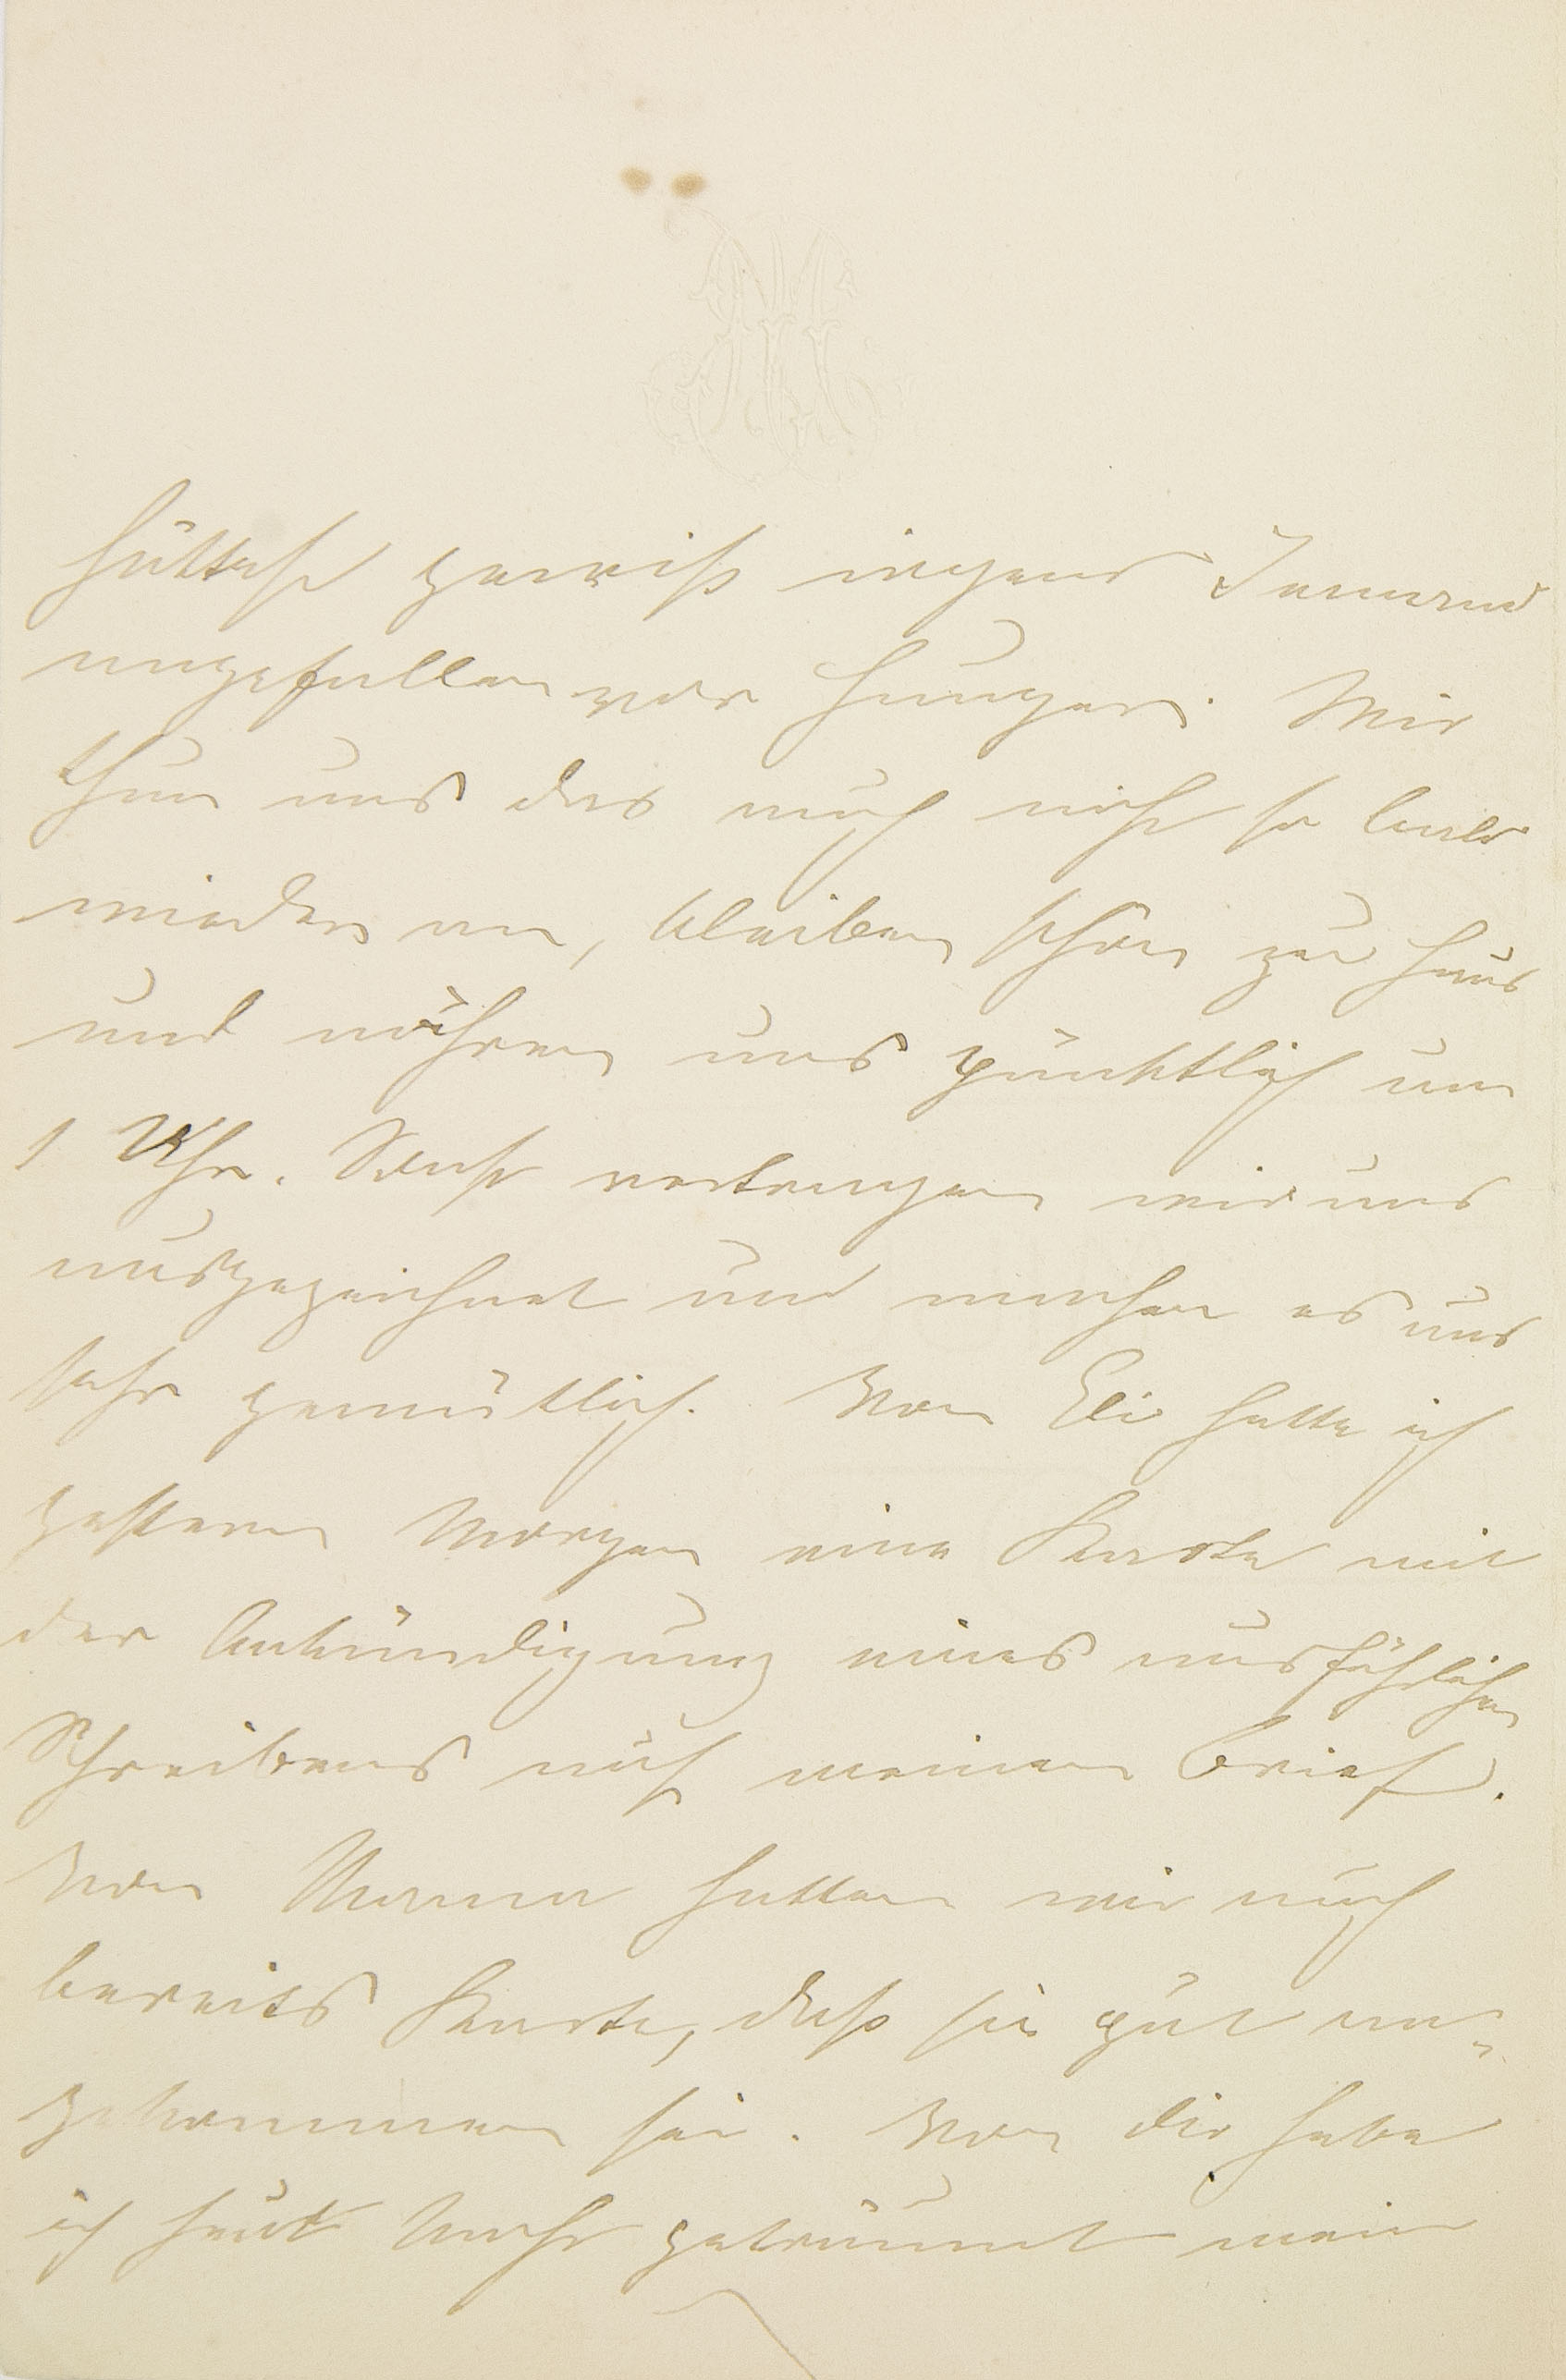 hättest gewiß irgend Jemand
angefallen vor Hunger. Wir
thun uns das auch nicht so bald
wieder an, bleiben schön zu Haus
und nähren uns pünktlich um
1 Uhr. Sonst vertragen wir uns
ausgezeichnet und machen es uns
sehr gemütlich. Von Eli hatte ich
gestern Morgen eine Karte mit
der Ankündigung eines ausführlichen
Schreibens auf meinen Brief.
Von Mama hatten wir auch
bereits Karte, daß sie gut an-
gekommen sei. Von dir habe
ich heut Nacht geträumt mein